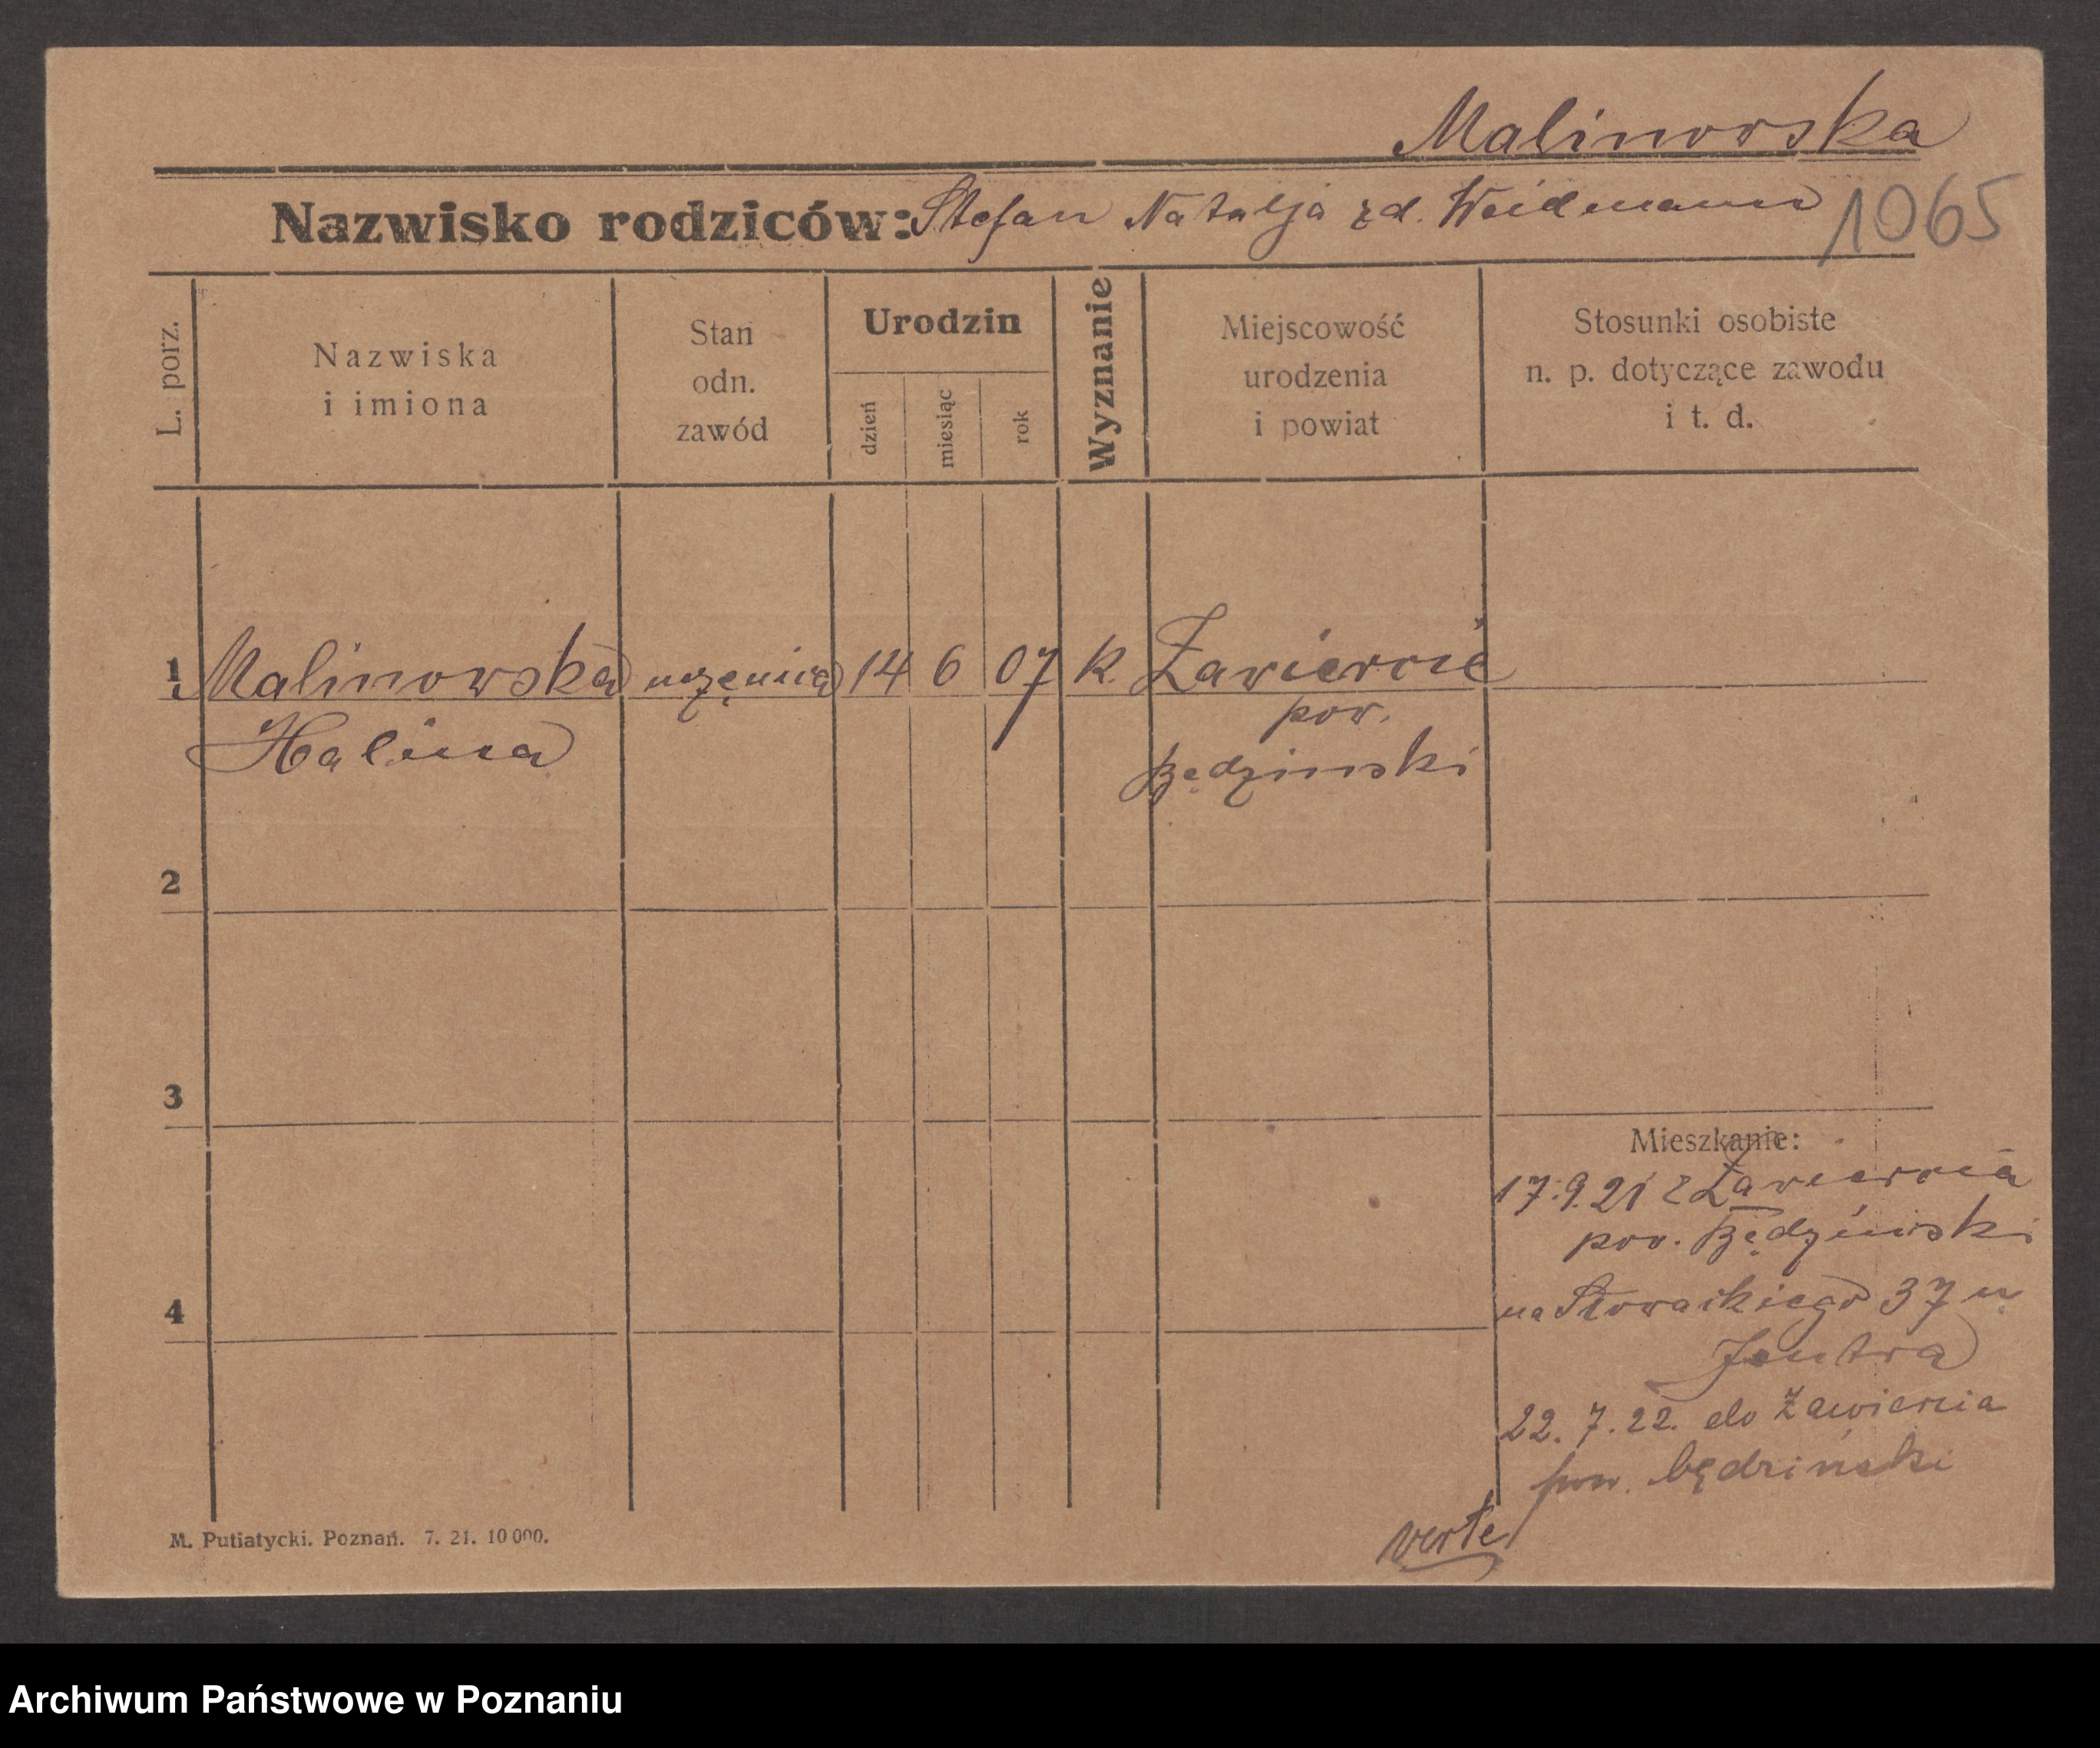 Malinowska
Nazwisko rodziców: Stefan Natalja zd. Weidmann 1065
L. porz.
Nazwiska
i imiona
Stan
odn.
zawód
Urodzin
dzień
miesiąc
rok
Wyznanie
Miejscowość
urodzenia
i powiat
Stosunki osobiste
n. p. dotyczące zawodu
i t. d.
1 Malinowska uczenica 14 6 07 k. Zawiercie
Halina
pow.
Będzinski
2
3
4
Mieszkanie:
17.9.21 z Zawiercia
pow. Będzinski
na Słowackiego 37 u
22. 7. 22. do Zawiercia
pow. będziński
verte
M. Putiatycki. Poznań. 7. 21. 10 000.
Archiwum Państwowe w Poznaniu